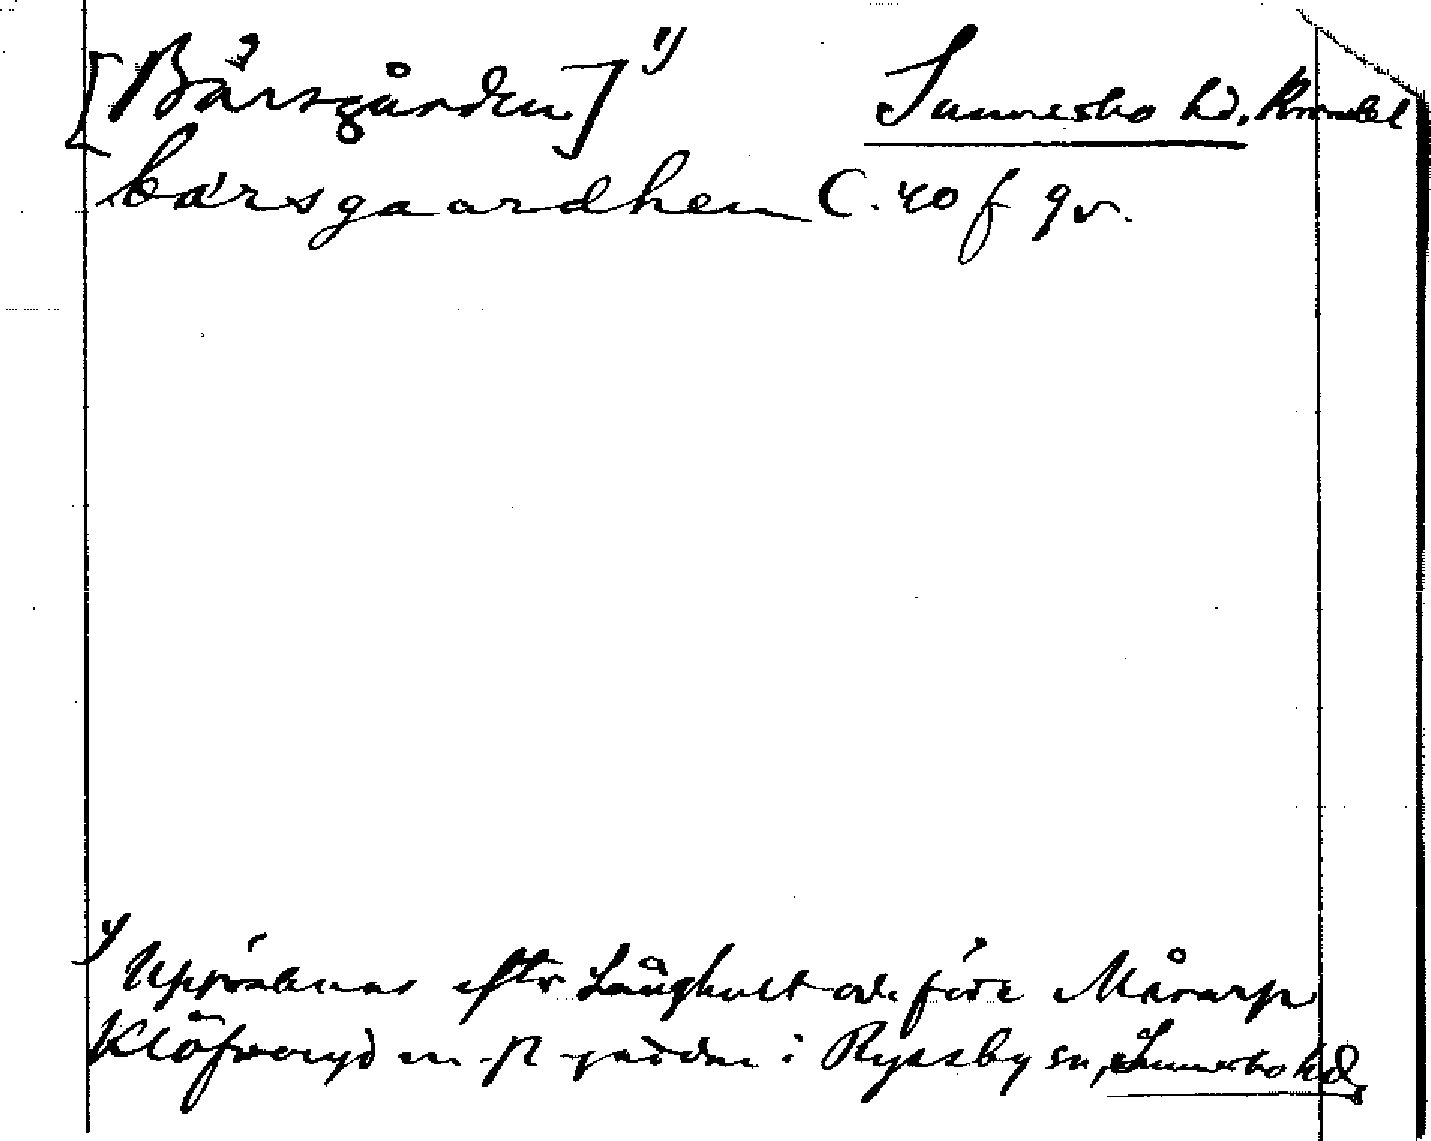 [Bärsgården] 1) Sunnerbo hd. Kronobl
bærsgaardhen C. 40 f 9v.
1) Uppräknas efter Långhult och före Mårarp
Klöfveryd m fl gårdar i Ryssby sn, Sunnerbo hd.